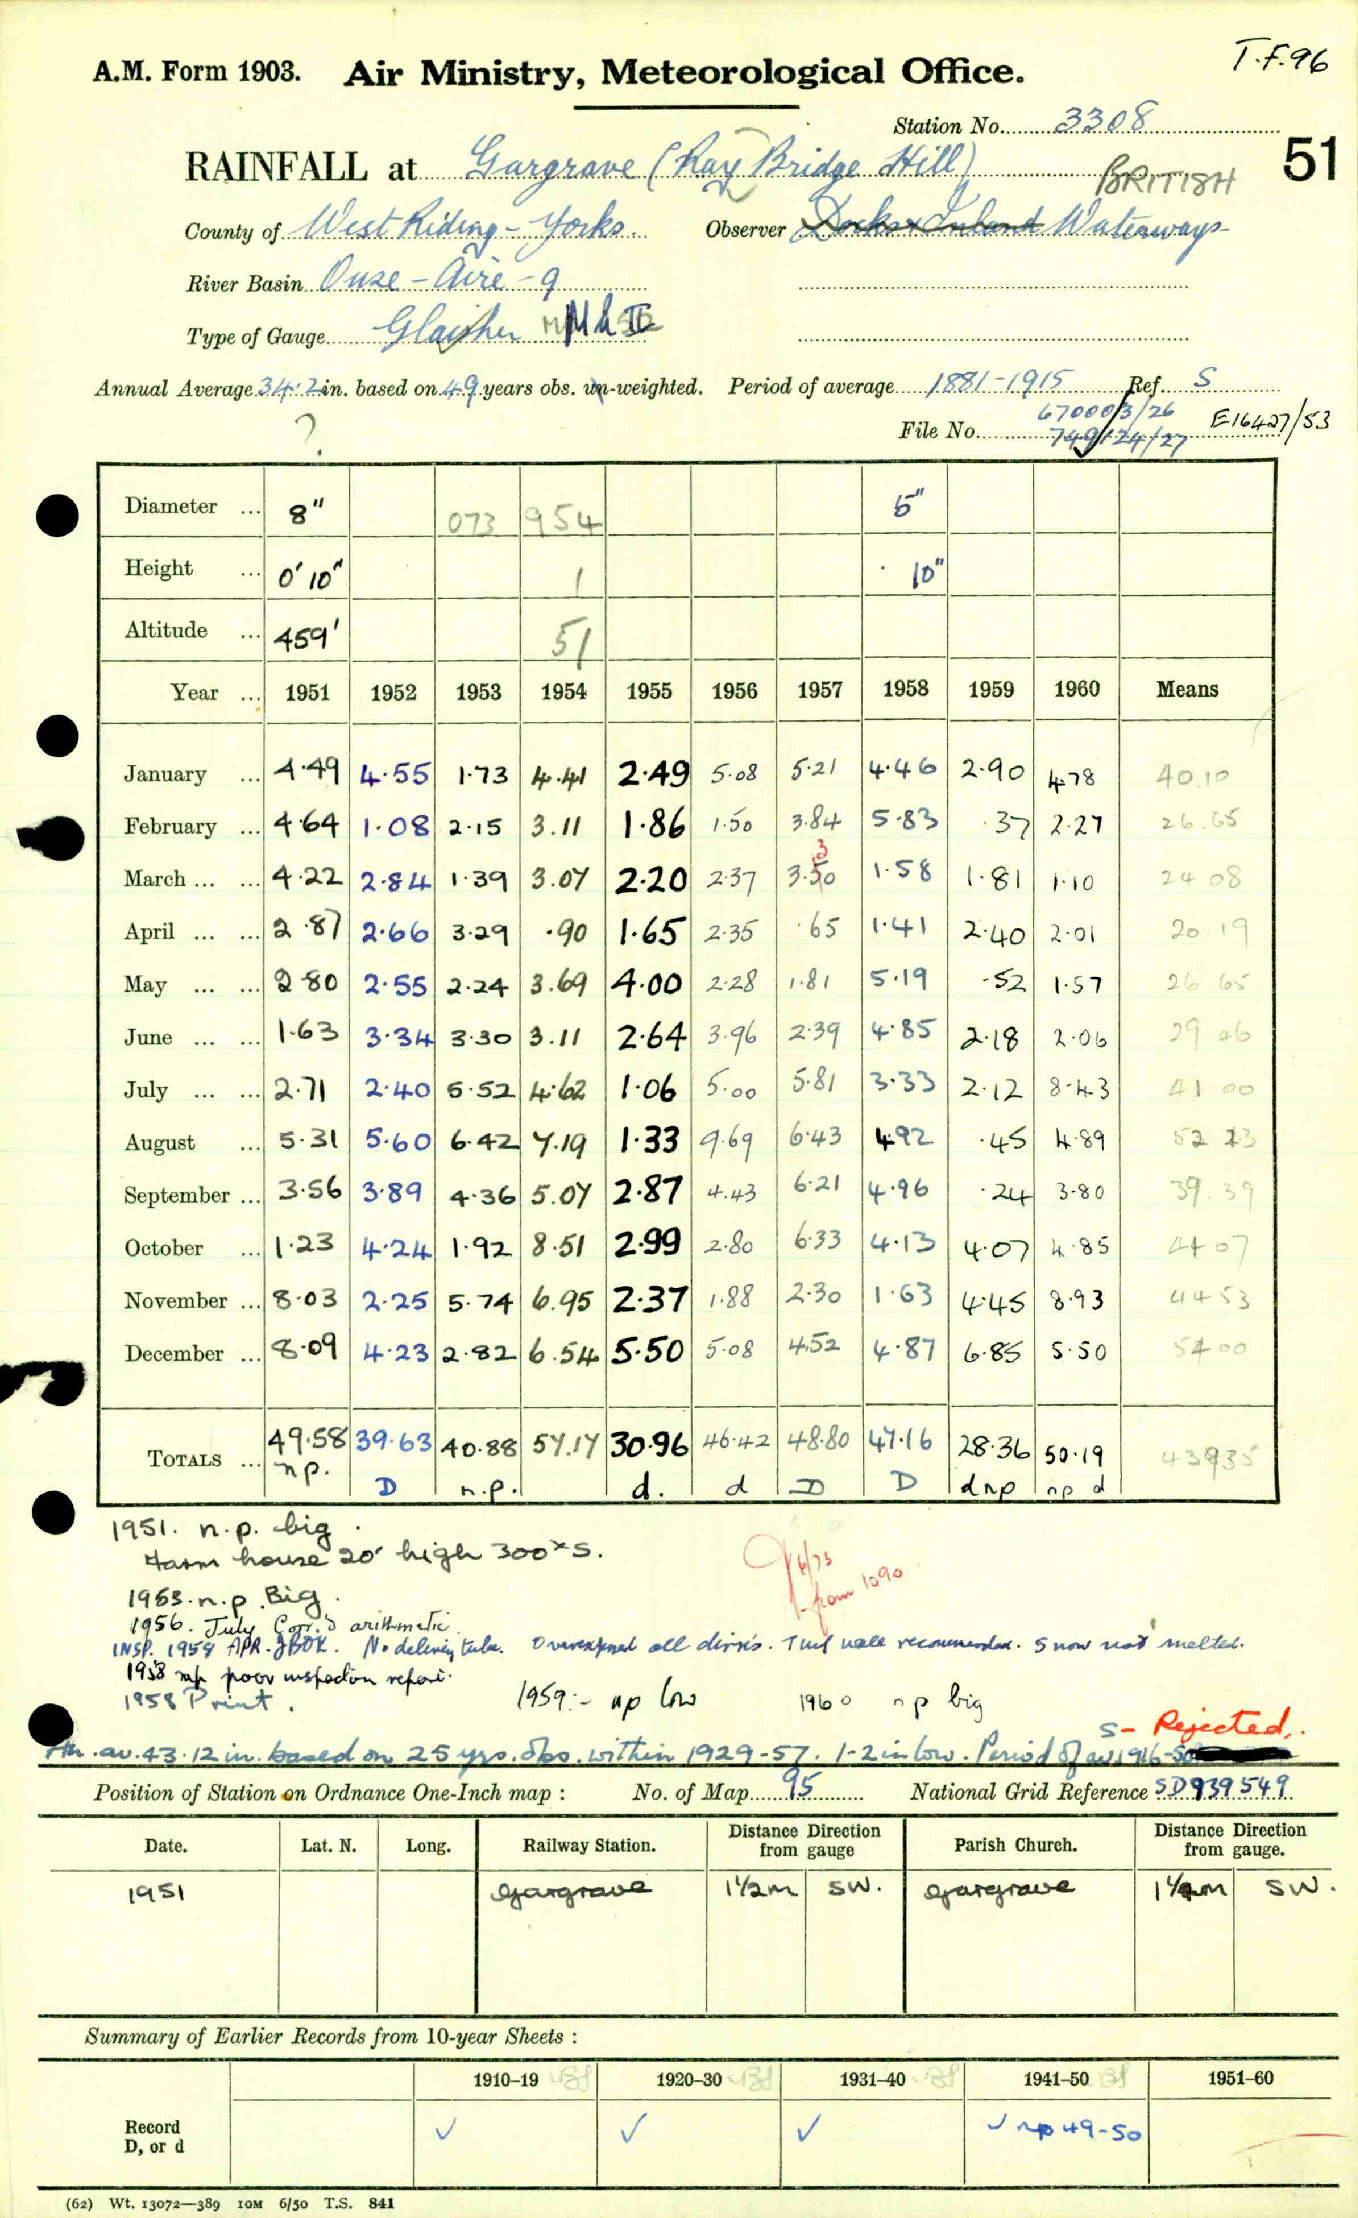 T.F.96
A.M. Form 1903. Air Ministry, Meteorological Office.
Station No. 3308
51
RAINFALL at Gargrave (Ray Bridge Hill) BRITISH
County of West Riding - Yorks. Observer Docks & Inland Waterways
River Basin Ouse - Aire - 9
Type of Gauge Glaisher Mk II
Annual Average 34.2 in. based on 49 years obs. un-weighted. Period of average 1881-1915 Ref. S
?
File No. 67000/3/26 E16427/53
749124/27
Diameter ... 8" 073 954 5"
Height ... 0' 10" 1 10"
Altitude ... 459' 51
Year ... 1951 1952 1953 1954 1955 1956 1957 1958 1959 1960 Means
January ... 4.49 4.55 1.73 4.41 2.49 5.08 5.21 4.46 2.90 4.78 40.10
February ... 4.64 1.08 2.15 3.11 1.86 1.50 3.84 5.83 .37 2.27 26.65
3
March ... ... 4.22 2.84 1.39 3.07 2.20 2.37 3.50 1.58 1.81 1.10 24 08
April ... ... 2.87 2.66 3.29 .90 1.65 2.35 .65 1.41 2.40 2.01 20.19
May ... ... 2.80 2.55 2.24 3.69 4.00 2.28 1.81 5.19 .52 1.57 26 65
June ... ... 1.63 3.34 3.30 3.11 2.64 3.96 2.39 4.85 2.18 2.06 29 46
July ... ... 2.71 2.40 5.52 4.62 1.06 5.00 5.81 3.33 2.12 8.43 41 00
August ... 5.31 5.60 6.42 7.19 1.33 9.69 6.43 4.92 .45 4.89 52 23
September ... 3.56 3.89 4.36 5.07 2.87 4.43 6.21 4.96 .24 3.80 39.39
October ... 1.23 4.24 1.92 8.51 2.99 2.80 6.33 4.13 4.07 4.85 44 07
November ... 8.03 2.25 5.74 6.95 2.37 1.88 2.30 1.63 4.45 8.93 44 53
December ... 8.09 4.23 2.82 6.54 5.50 5.08 4.52 4.87 6.85 5.50 54 00
TOTALS ... 49.58 39.63 40.88 57.17 30.96 46.42 48.80 47.16 28.36 50.19 43935
n.p. D n.p. d. d D D d n p n p d
1951. n.p. big
Farm house 20' high 300ˣ S.
6/73
from 1090
1953. n.p. Big.
1956. July Corr'd arithmetic
INSP. 1958 APR. JBOK. No delivery tube. Overexposed all dirns. Turf wall recommended. Snow not melted.
1958 np poor inspection report.
1958 Print. 1959:- np low 1960 n p big
S - Rejected.
Ann. av. 43.12 in. based on 25 yrs. obs. within 1929-57. 1-2 in low. Period of av. 1916-50
Position of Station on Ordnance One-Inch map : No. of Map 95 National Grid Reference SD939549
Date. Lat. N. Long. Railway Station. Distance from gauge Direction Parish Church. Distance from gauge. Direction
1951 Gargrave 1½m SW. Gargrave 1¼m SW.
Summary of Earlier Records from 10-year Sheets :
1910-19 1920-30 1931-40 1941-50 1951-60
Record
D, or d ✓ ✓ ✓ ✓ np 49-50
(62) Wt. 13072—389 10M 6/50 T.S. 841